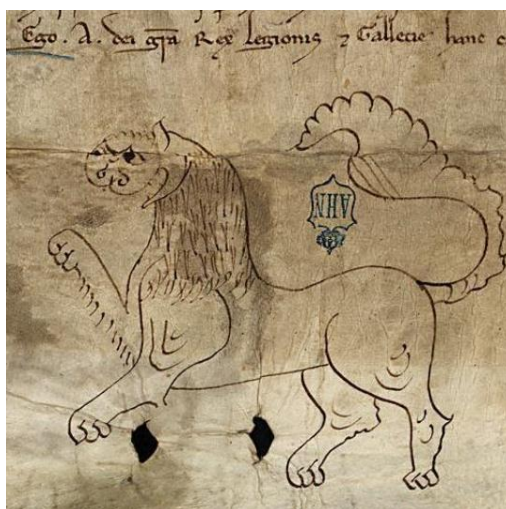 Ego . A. dei gra Rex Legionis ⁊ Gallecie hanc c
AHN